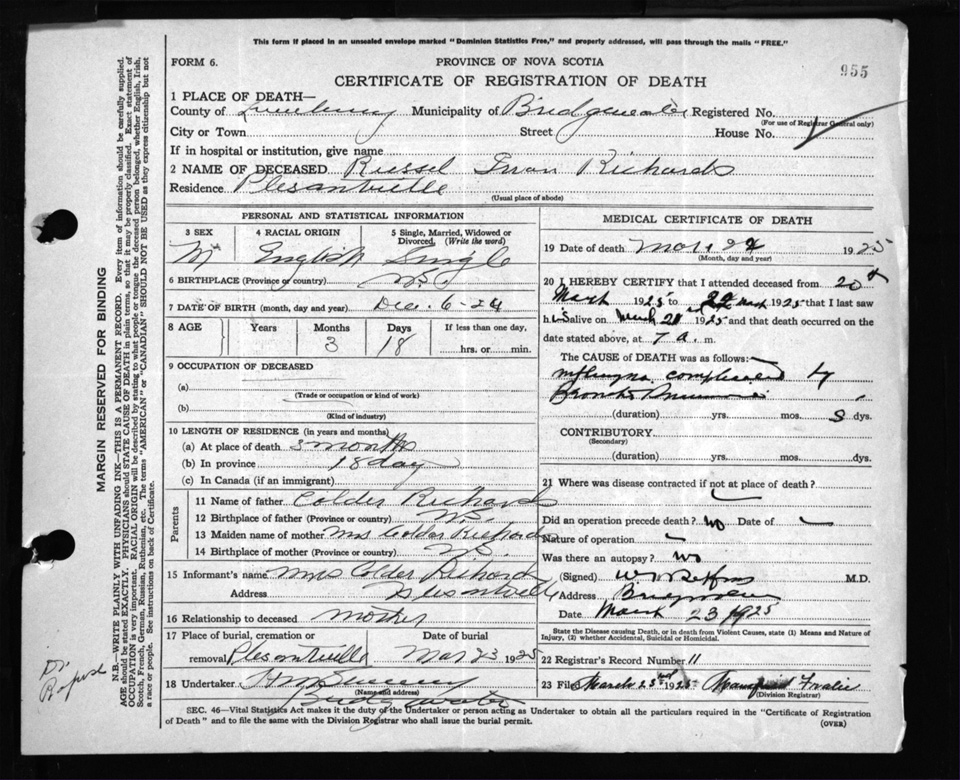 This form if placed in an unsealed envelope marked "Dominion Statistics Free," and properly addressed, will pass through the mails "FREE."
FORM 6.
PROVINCE OF NOVA SCOTIA
955
CERTIFICATE OF REGISTRATION OF DEATH
1 PLACE OF DEATH—
County of Lunenburg Municipality of Bridgewater Registered No.
(For use of Registrar General only)
City or Town Street House No.
If in hospital or institution, give name
2 NAME OF DECEASED Russel Richards
Residence Plesantville
(Usual place of abode)
PERSONAL AND STATISTICAL INFORMATION
3 SEX
4 RACIAL ORIGIN
5 Single, Married, Widowed or Divorced. (Write the word)
M
English
Single
6 BIRTHPLACE (Province or country) N.S.
7 DATE OF BIRTH (month, day and year) Dec. 6-24
8 AGE
Years
Months
Days
If less than one day,
3
18
hrs. or min.
9 OCCUPATION OF DECEASED
(a)
(Trade or occupation or kind of work)
(b)
(Kind of industry)
10 LENGTH OF RESIDENCE (in years and months)
(a) At place of death 3 months
(b) In province 18 day
(c) In Canada (if an immigrant)
Parents
11 Name of father Colder Richards
12 Birthplace of father (Province or country) N.S.
13 Maiden name of mother Mrs Colder Richards
14 Birthplace of mother (Province or country) N.S.
15 Informant's name Mrs Colder Richards
Address Plesantville
16 Relationship to deceased mother
17 Place of burial, cremation or
Date of burial
removal Plesantville Mar 23 1925
18 Undertaker
(Name and address)
Bridgewater
MEDICAL CERTIFICATE OF DEATH
19 Date of death Mar 24 1925
(Month, day and year)
20 I HEREBY CERTIFY that I attended deceased from 20th
March 1925 to 22nd March 1925 that I last saw
h is alive on March 21 1925 and that death occurred on the
date stated above, at 7 a. m.
The CAUSE of DEATH was as follows:—
Influenza complicated by
Broncho Pneumonia
(duration) yrs. mos. 3 dys.
CONTRIBUTORY
(Secondary)
(duration) yrs. mos. dys.
21 Where was disease contracted if not at place of death?
Did an operation precede death? No Date of
Nature of operation
Was there an autopsy? No
(Signed) M.D.
Address Bridgewater
Date March 23 1925
State the Disease causing Death, or in death from Violent Causes, state (1) Means and Nature of Injury, (2) whether Accidental, Suicidal or Homicidal.
22 Registrar's Record Number 11
23 Filed March 23rd 1925
(Division Registrar)
SEC. 46—Vital Statistics Act makes it the duty of the Undertaker or person acting as Undertaker to obtain all the particulars required in the "Certificate of Registration
of Death" and to file the same with the Division Registrar who shall issue the burial permit.
(OVER)
MARGIN RESERVED FOR BINDING
N.B.—WRITE PLAINLY WITH UNFADING INK—THIS IS A PERMANENT RECORD. Every item of information should be carefully supplied.
AGE should be stated EXACTLY. PHYSICIANS should STATE CAUSE OF DEATH in plain terms, so that it may be properly classified. Exact statement of
OCCUPATION is very important. RACIAL ORIGIN will be described by stating to what people or tongue the deceased person belonged, whether English, Irish,
Scotch, French, German, Russian, Ruthenian, etc. The terms "AMERICAN" or "CANADIAN" SHOULD NOT BE USED as they express citizenship but not
a race or people. See instructions on back of Certificate.